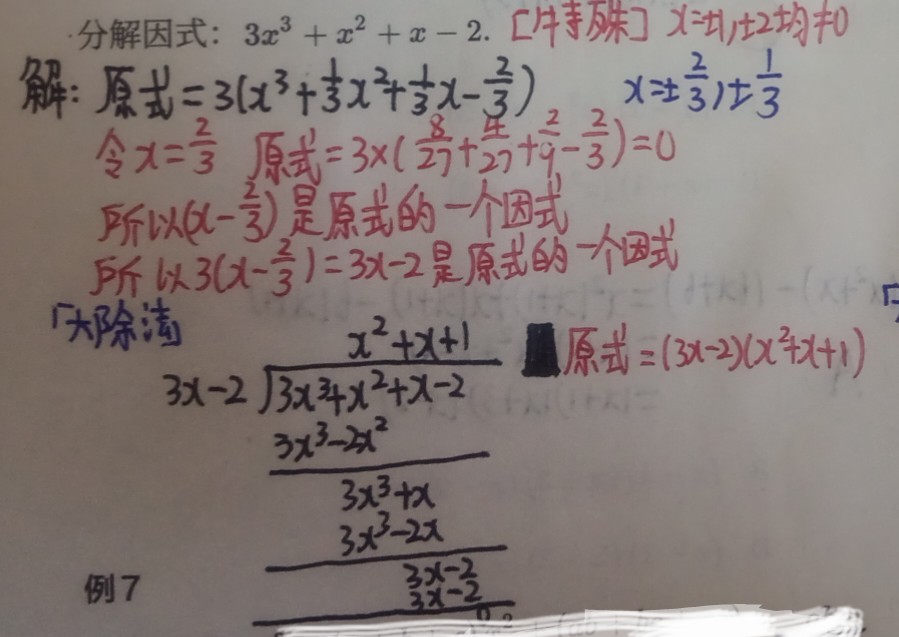 分解因式: 3x³ + x² + x − 2. [特殊] x=±1,±2均≠0
解: 原式=3(x³+1/3x²+1/3x-2/3) x=±2/3,±1/3
令x=2/3 原式=3×(8/27+4/27+2/9-2/3)=0
所以(x-2/3)是原式的一个因式
所以3(x-2/3)=3x-2是原式的一个因式
「大除法」
x²+x+1
3x-2 3x³+x²+x-2 原式=(3x-2)(x²+x+1)
3x³-2x²
3x³+x
3x³-2x
3x-2
例7 3x-2
0